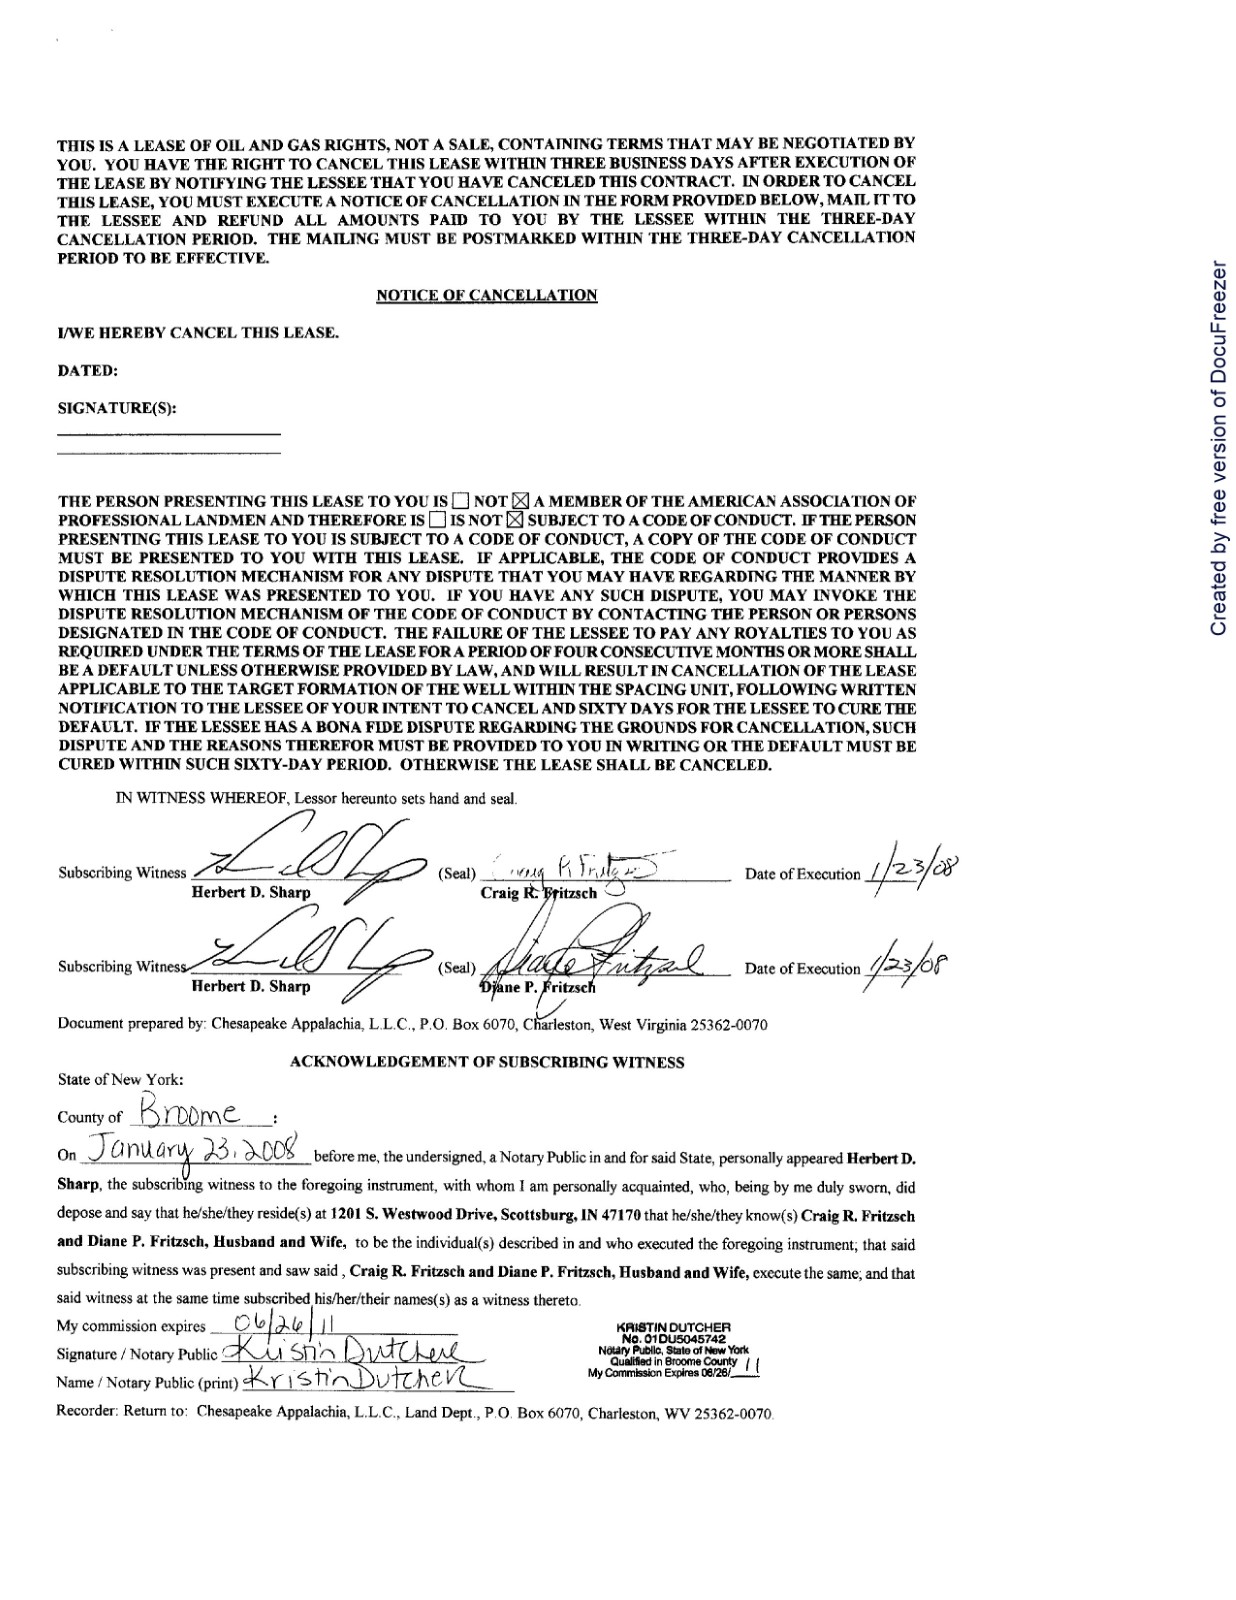 THIS IS A LEASE OF OIL AND GAS RIGHTS, NOT A SALE, CONTAINING TERMS THAT MAY BE NEGOTIATED BY
YOU. YOU HAVE THE RIGHT TO CANCEL THIS LEASE WITHIN THREE BUSINESS DAYS AFTER EXECUTION OF
THE LEASE BY NOTIFYING THE LESSEE THAT YOU HAVE CANCELED THIS CONTRACT. IN ORDER TO CANCEL
THIS LEASE, YOU MUST EXECUTE A NOTICE OF CANCELLATION IN THE FORM PROVIDED BELOW, MAIL IT TO
THE LESSEE AND REFUND ALL AMOUNTS PAID TO YOU BY THE LESSEE WITHIN THE THREE-DAY
CANCELLATION PERIOD. THE MAILING MUST BE POSTMARKED WITHIN THE THREE-DAY CANCELLATION
PERIOD TO BE EFFECTIVE.
NOTICE OF CANCELLATION
I/WE HEREBY CANCEL THIS LEASE.
DATED:
SIGNATURE(S):
THE PERSON PRESENTING THIS LEASE TO YOU IS ☐ NOT ☒ A MEMBER OF THE AMERICAN ASSOCIATION OF
PROFESSIONAL LANDMEN AND THEREFORE IS ☐ IS NOT ☒ SUBJECT TO A CODE OF CONDUCT. IF THE PERSON
PRESENTING THIS LEASE TO YOU IS SUBJECT TO A CODE OF CONDUCT, A COPY OF THE CODE OF CONDUCT
MUST BE PRESENTED TO YOU WITH THIS LEASE. IF APPLICABLE, THE CODE OF CONDUCT PROVIDES A
DISPUTE RESOLUTION MECHANISM FOR ANY DISPUTE THAT YOU MAY HAVE REGARDING THE MANNER BY
WHICH THIS LEASE WAS PRESENTED TO YOU. IF YOU HAVE ANY SUCH DISPUTE, YOU MAY INVOKE THE
DISPUTE RESOLUTION MECHANISM OF THE CODE OF CONDUCT BY CONTACTING THE PERSON OR PERSONS
DESIGNATED IN THE CODE OF CONDUCT. THE FAILURE OF THE LESSEE TO PAY ANY ROYALTIES TO YOU AS
REQUIRED UNDER THE TERMS OF THE LEASE FOR A PERIOD OF FOUR CONSECUTIVE MONTHS OR MORE SHALL
BE A DEFAULT UNLESS OTHERWISE PROVIDED BY LAW, AND WILL RESULT IN CANCELLATION OF THE LEASE
APPLICABLE TO THE TARGET FORMATION OF THE WELL WITHIN THE SPACING UNIT, FOLLOWING WRITTEN
NOTIFICATION TO THE LESSEE OF YOUR INTENT TO CANCEL AND SIXTY DAYS FOR THE LESSEE TO CURE THE
DEFAULT. IF THE LESSEE HAS A BONA FIDE DISPUTE REGARDING THE GROUNDS FOR CANCELLATION, SUCH
DISPUTE AND THE REASONS THEREFOR MUST BE PROVIDED TO YOU IN WRITING OR THE DEFAULT MUST BE
CURED WITHIN SUCH SIXTY-DAY PERIOD. OTHERWISE THE LEASE SHALL BE CANCELED.
IN WITNESS WHEREOF, Lessor hereunto sets hand and seal.
Subscribing Witness (Seal) Craig R Fritzsch Date of Execution 1/23/08
Herbert D. Sharp Craig R. Fritzsch
Subscribing Witness (Seal) Diane Fritzsch Date of Execution 1/23/08
Herbert D. Sharp Diane P. Fritzsch
Document prepared by: Chesapeake Appalachia, L.L.C., P.O. Box 6070, Charleston, West Virginia 25362-0070
ACKNOWLEDGEMENT OF SUBSCRIBING WITNESS
State of New York:
County of Broome :
On January 23, 2008 before me, the undersigned, a Notary Public in and for said State, personally appeared Herbert D.
Sharp, the subscribing witness to the foregoing instrument, with whom I am personally acquainted, who, being by me duly sworn, did
depose and say that he/she/they reside(s) at 1201 S. Westwood Drive, Scottsburg, IN 47170 that he/she/they know(s) Craig R. Fritzsch
and Diane P. Fritzsch, Husband and Wife, to be the individual(s) described in and who executed the foregoing instrument; that said
subscribing witness was present and saw said , Craig R. Fritzsch and Diane P. Fritzsch, Husband and Wife, execute the same; and that
said witness at the same time subscribed his/her/their names(s) as a witness thereto.
My commission expires 06/26/11
Signature / Notary Public Kristin Dutcher
Name / Notary Public (print) Kristin Dutcher
KRISTIN DUTCHER
No. 01DU5045742
Notary Public, State of New York
Qualified in Broome County
My Commission Expires 06/26/11
Recorder: Return to: Chesapeake Appalachia, L.L.C., Land Dept., P.O. Box 6070, Charleston, WV 25362-0070.
Created by free version of DocuFreezer